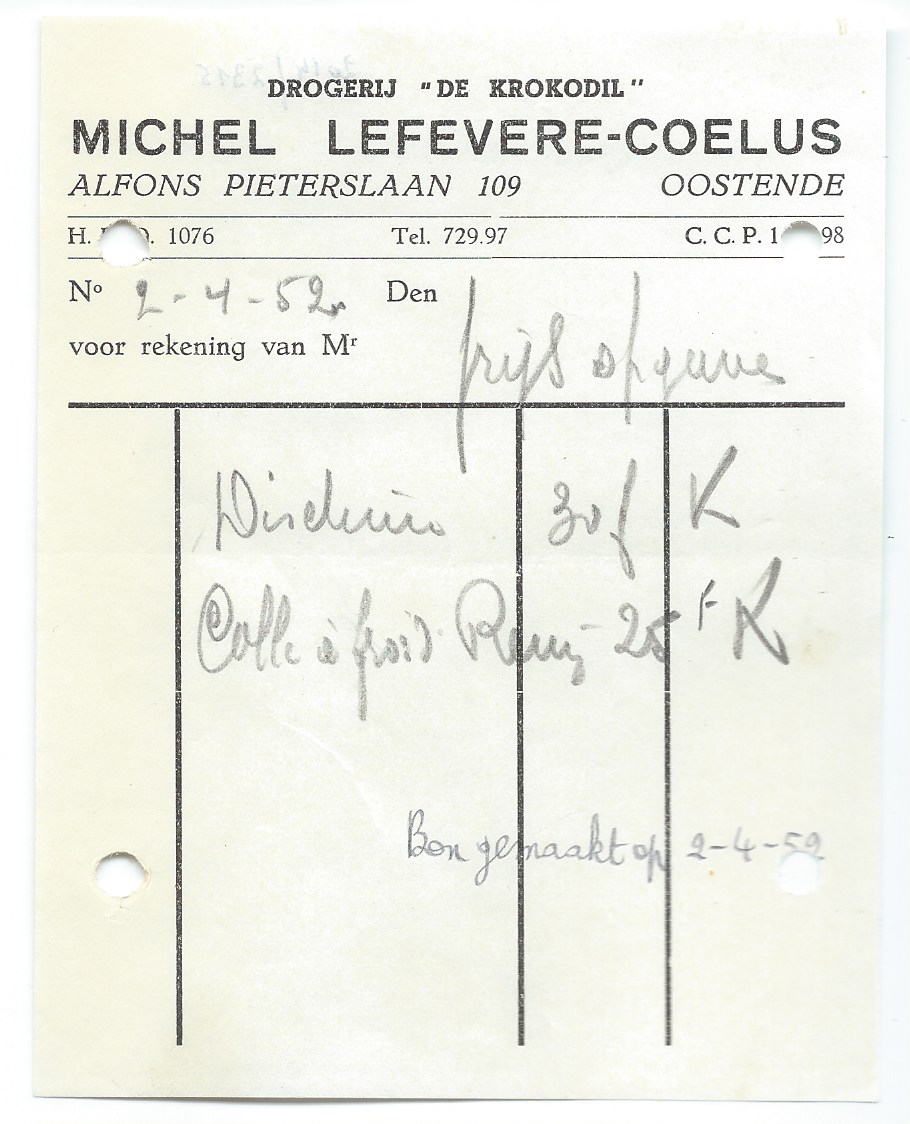 DROGERIJ "DE KROKODIL"
MICHEL LEFEVERE-COELUS
ALFONS PIETERSLAAN 109 OOSTENDE
H. 1076 Tel. 729.97 C. C. P. 1 98
Nº 2-4-52 Den
prijs opgave
voor rekening van Mr
30 f K
Colle à froid Remy 25 F K
Bon gemaakt op 2-4-52